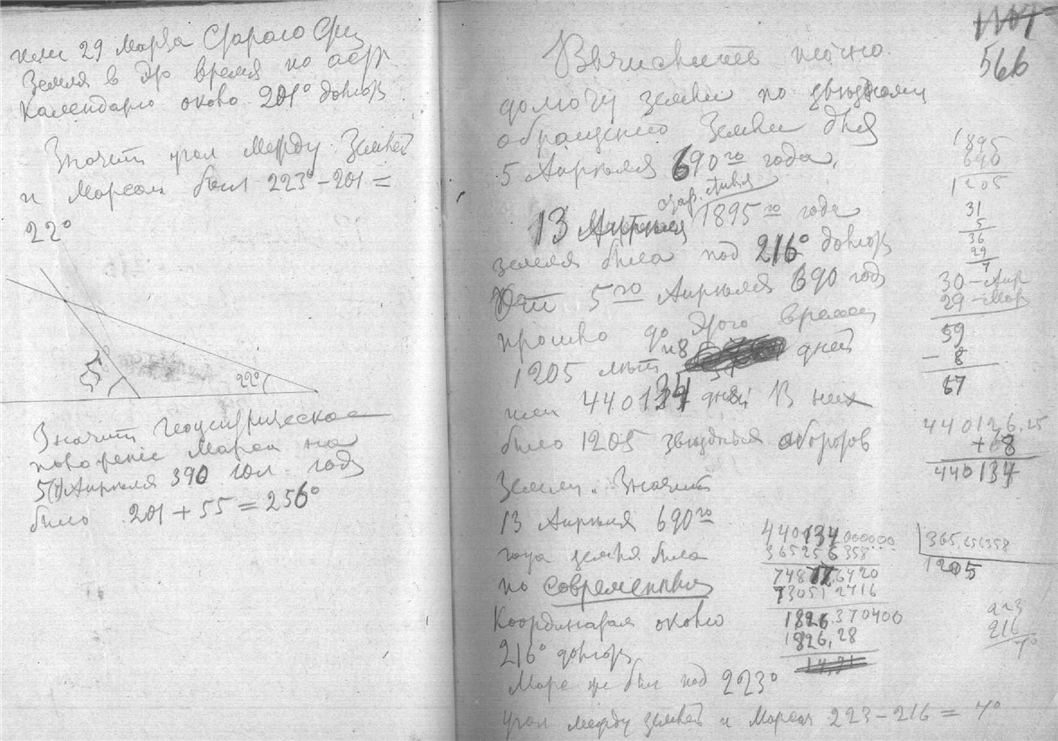 или 29 Марта Старого Сти
Земля в это время по астр
Календарю около 201° долгот
Значит угол между Землей
и Марсом был 223° – 201 =
22°
22°
55
Значит Геоцентрическое
положение Марса на
5 Апреля 390 год
было 201 + 55 = 256°
566
Вычислить точно
долготу земли по звездному
обращению Земли для
5 Апреля 690го года.
стар. стиля
13 Апреля 1895го года
земля была под 216° долгот
От 5го Апреля 690 года
прошло до этого времени
1205 лет и 8 дней
или 440134 дней В них
было 1205 звездных оборотов
Земли. Значит
13 Апреля 690го
года земля была
по современным
Координатам около
216° долгот
Марс же был под 223°
Угол между землей и Марсом 223 – 216 = 7°
1895
690
1205
31
5
36
29
7
30 – Апр
29 – Мар
59
– 8
67
440126,25
+68
440134
440134,000000
365256358
748776420
730512716
1826,370400
1826,28
365,256358
1205
223
216
7°